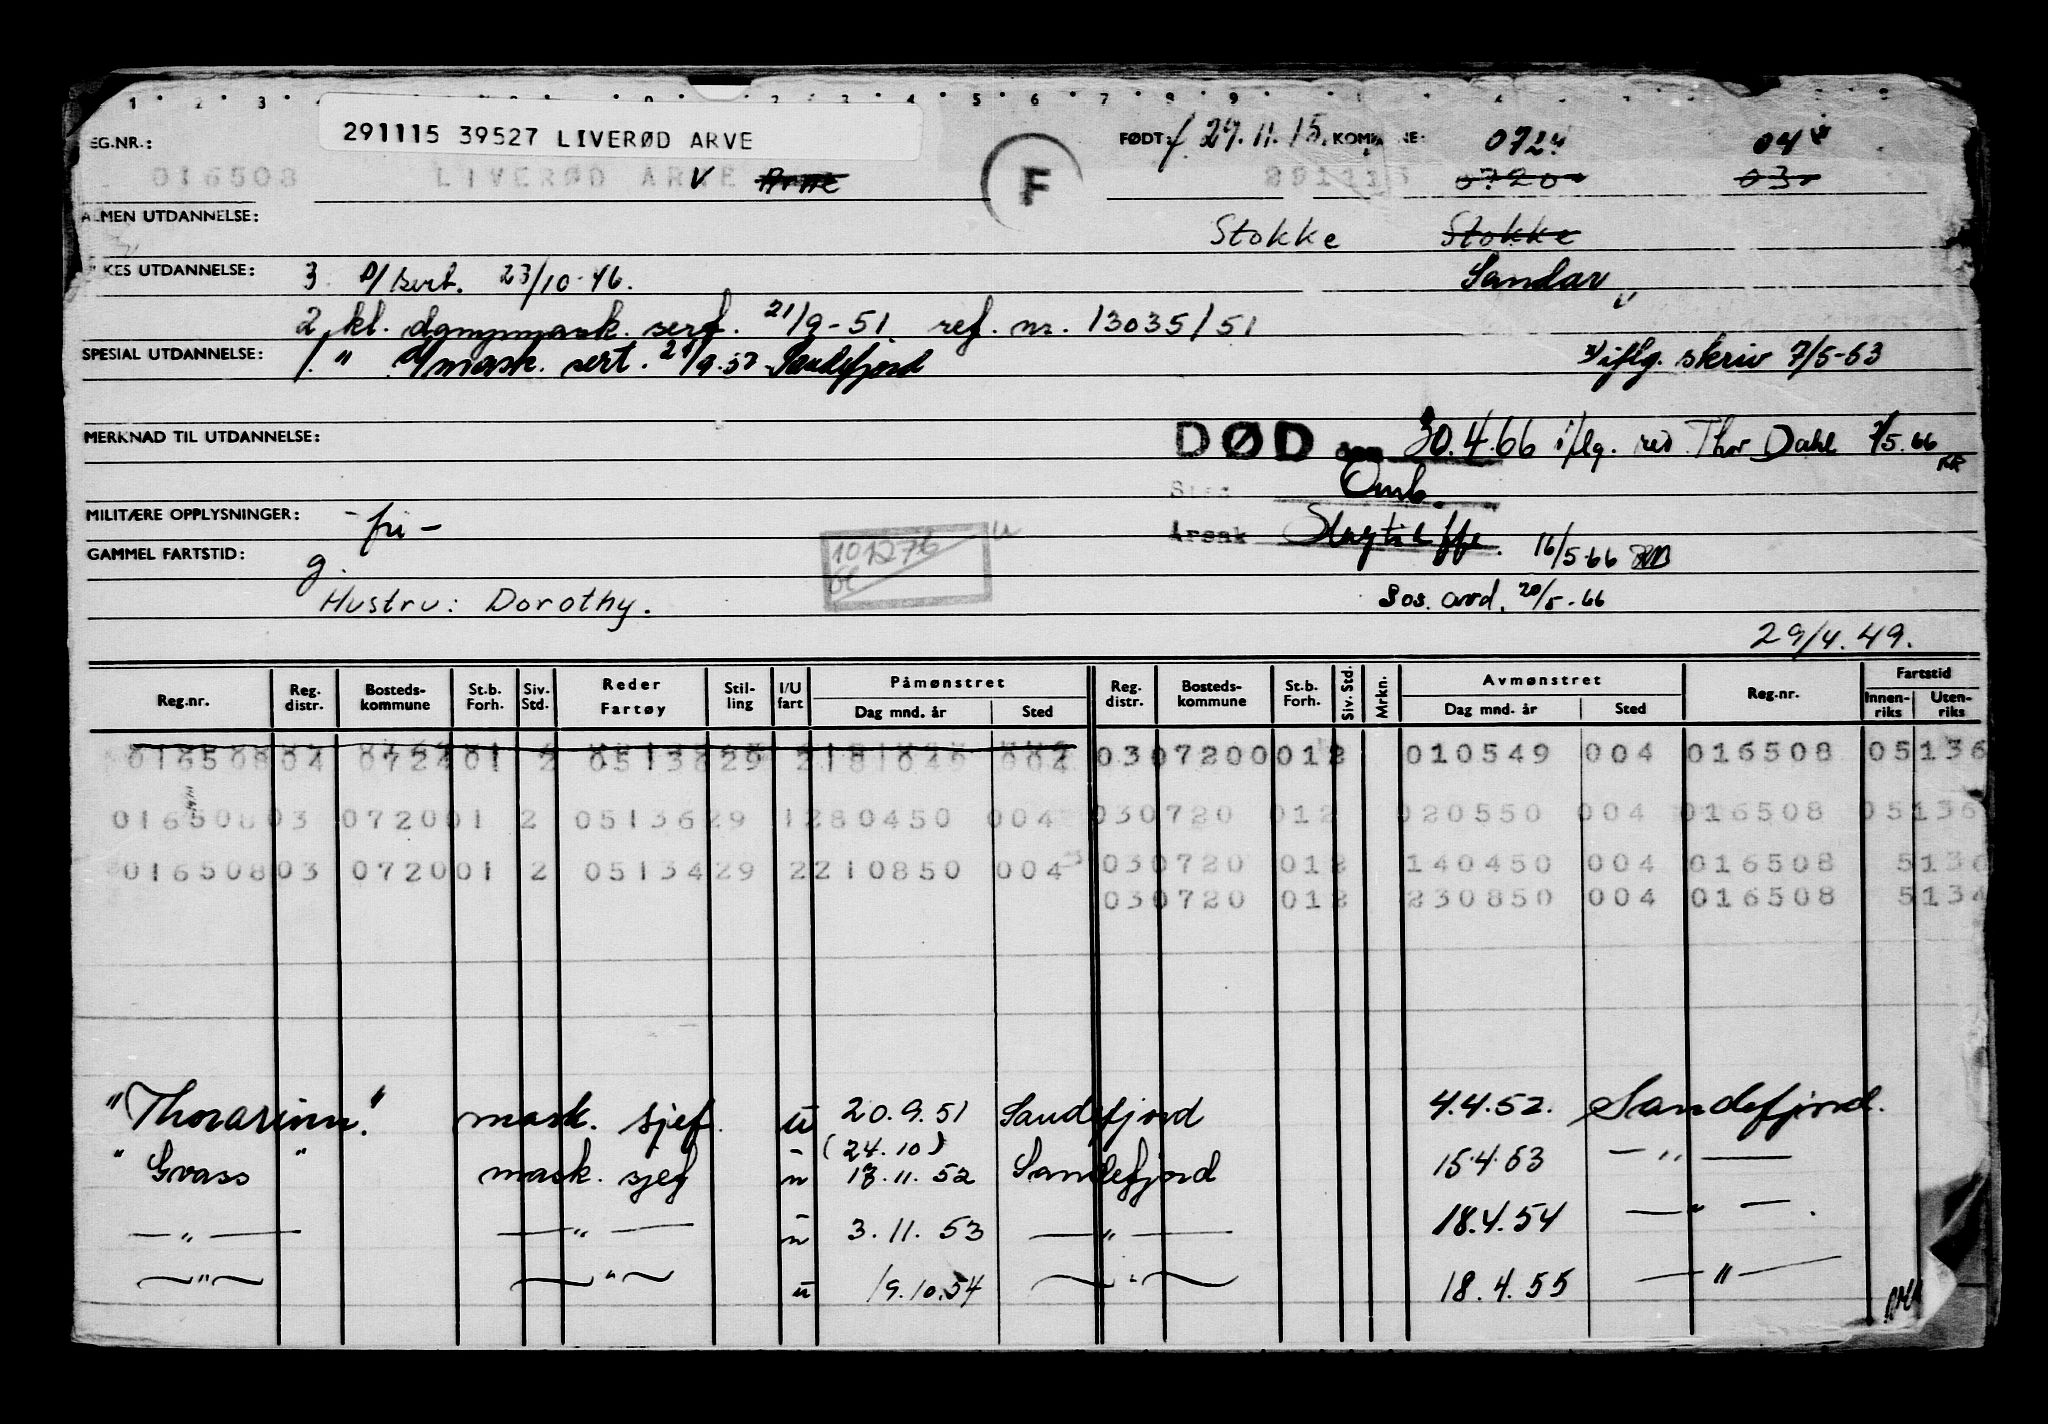 291115 39527 LIVERØD ARVE
EG.NR.:
016508 LIVERØD ARVE V
F
FØDT: 29.11.15. KOMMUNE: 0724 04
291115 0720 03
ALMEN UTDANNELSE:
Stokke Stokke
KES UTDANNELSE: 3 D/sert. 23/10-46. Sandar
2 kl. dampmask. serf. 21/9-51 ref. nr. 13035/51
SPESIAL UTDANNELSE: 1. " D/mask. sert. Sandefjord
x) iflg. skriv 7/5-63
MERKNAD TIL UTDANNELSE:
DØD den 30.4.66 iflg. red. Thor Dahl 7/5.66
Sted Omb.
MILITÆRE OPPLYSNINGER: - fri -
Årsak 16/5-66
GAMMEL FARTSTID: g.
101276
Hustru: Dorothy.
Sos. avd. 20/5-66
29/4.49.
Reg.nr. Reg. distr. Bosteds-kommune St.b. Forh. Siv. Std. Reder Fartøy Stil-ling I/U fart Påmønstret Dag mnd. år Sted Reg. distr. Bosteds-kommune St.b. Forh. Siv. Std. Mrkn. Avmønstret Dag mnd. år Sted Reg.nr. Fartstid Innen-riks Uten-riks
016508 04 0724 01 2 05136 29 2 181049 004 03 07200 01 2 010549 004 016508 05136
016508 03 0720 01 2 05136 29 1 280450 004 03 0720 01 2 020550 004 016508 05136
016508 03 0720 01 2 05134 29 2 210850 004 03 0720 01 2 140450 004 016508 5136
03 0720 01 2 230850 004 016508 5134
"Thorarinn." mask. sjef. u 20.9.51 Sandefjord 4.4.52. Sandefjord.
(24.10)
" Gvass " mask. sjef u 17.11.52 Sandefjord 15.4.53 — " —
— " — — " — u 3.11.53 — " — 18.4.54 — " — .
— " — — " — u 19.10.54 — " — 18.4.55 — " —